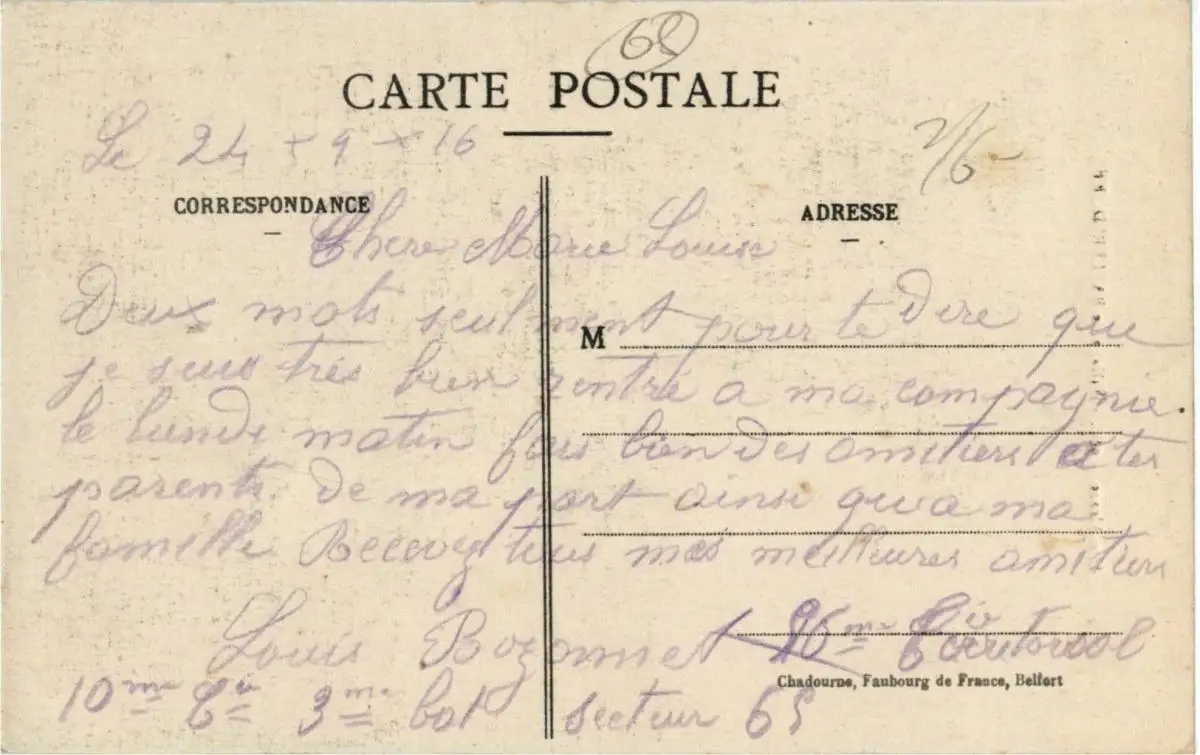 CARTE POSTALE
Le 24 + 9 × 16
CORRESPONDANCE
ADRESSE
Chere Marie Louise
Deux mots seulment pour te dire que
M
je suis très bien rentré a ma compagnie.
le lundi matin fais bien des amitiers a tes
parents. de ma part ainsi qua ma
famille Recevez tous mes meilleures amitiers
Louis Bozonnet territorial
Chadourne, Faubourg de France, Belfort
10me Cie 3me bat secteur 65